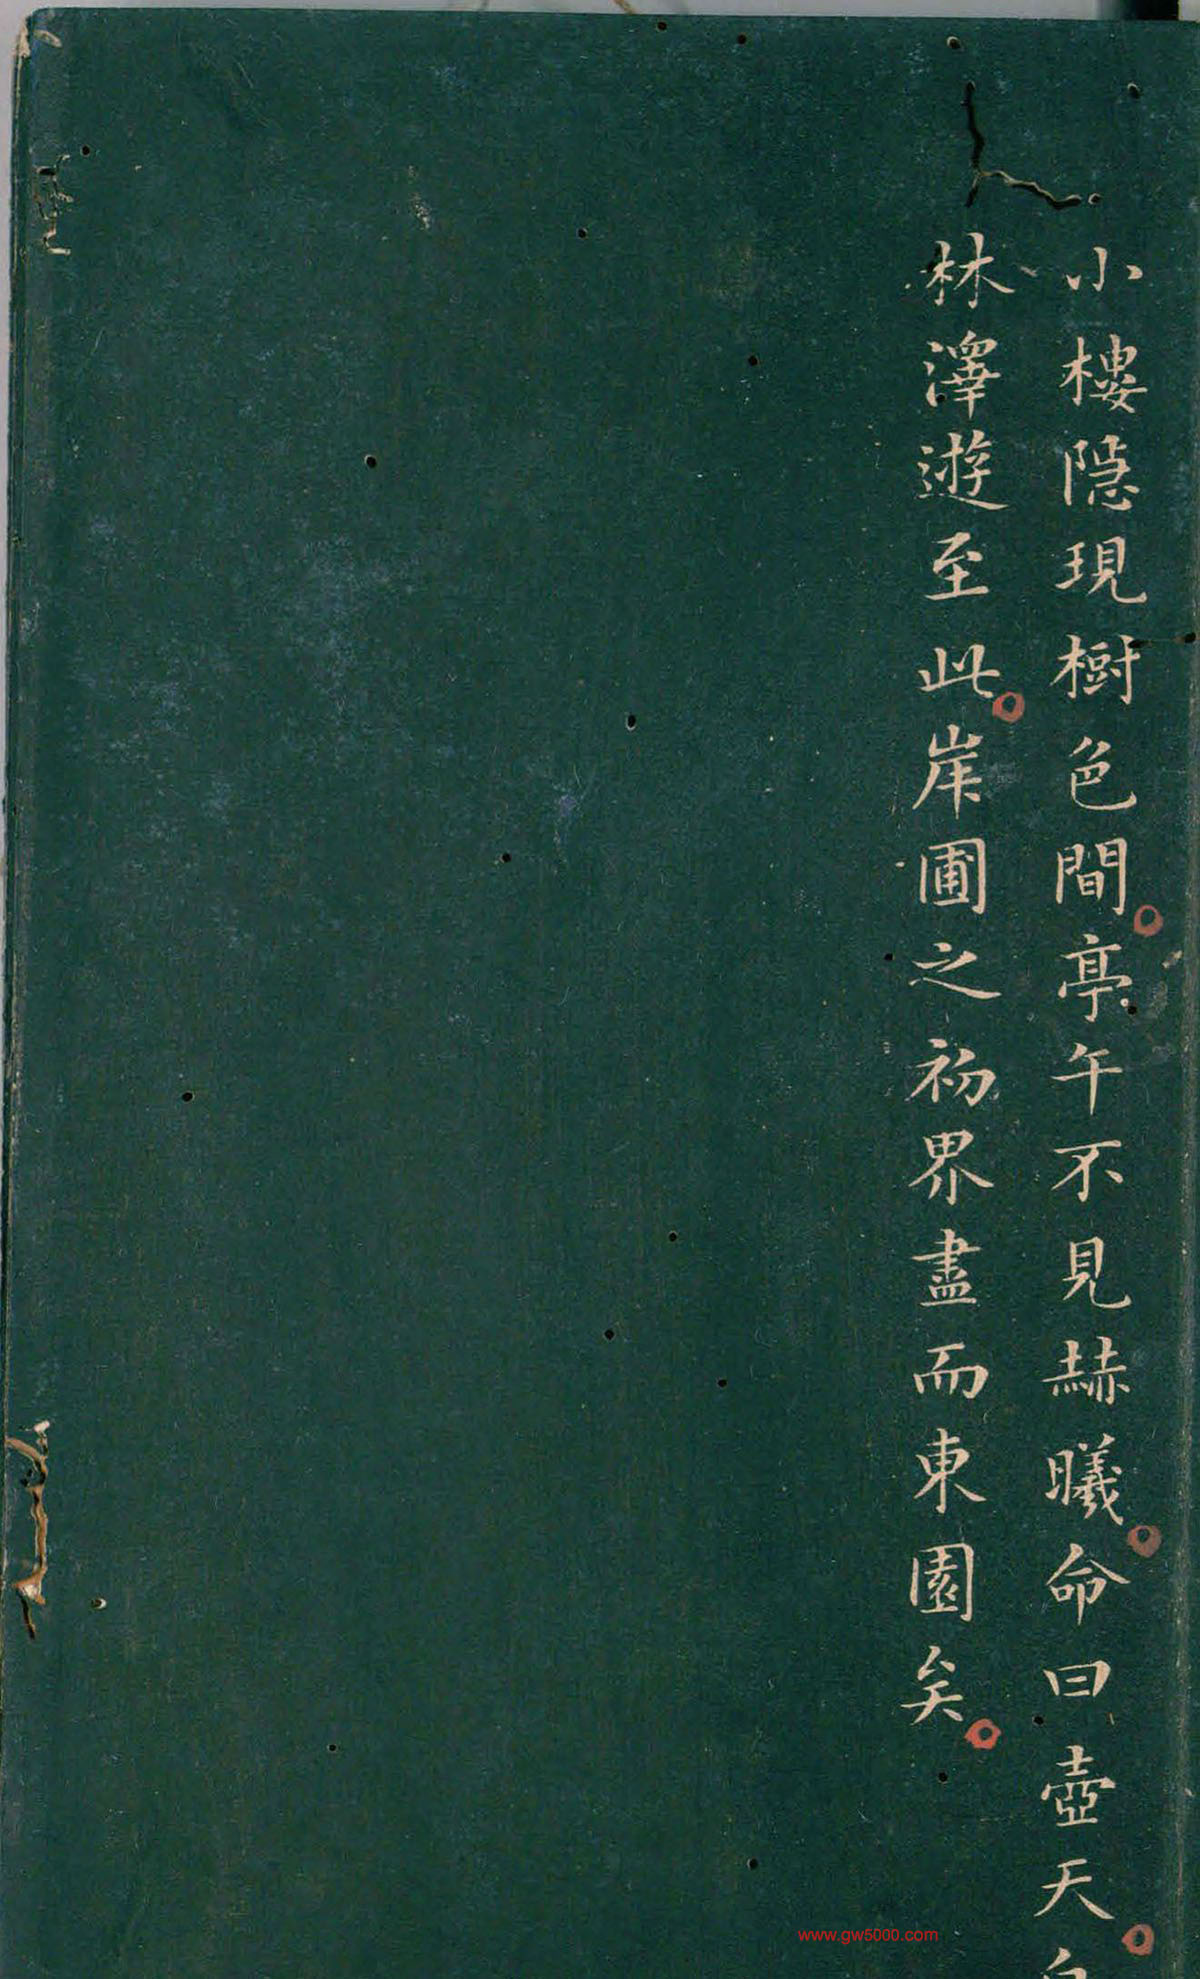 小樓隱現樹色間亭午不見赫曦命曰壺天
林澤遊至此岸圃之初界盡而東園矣
www.gw5000.com